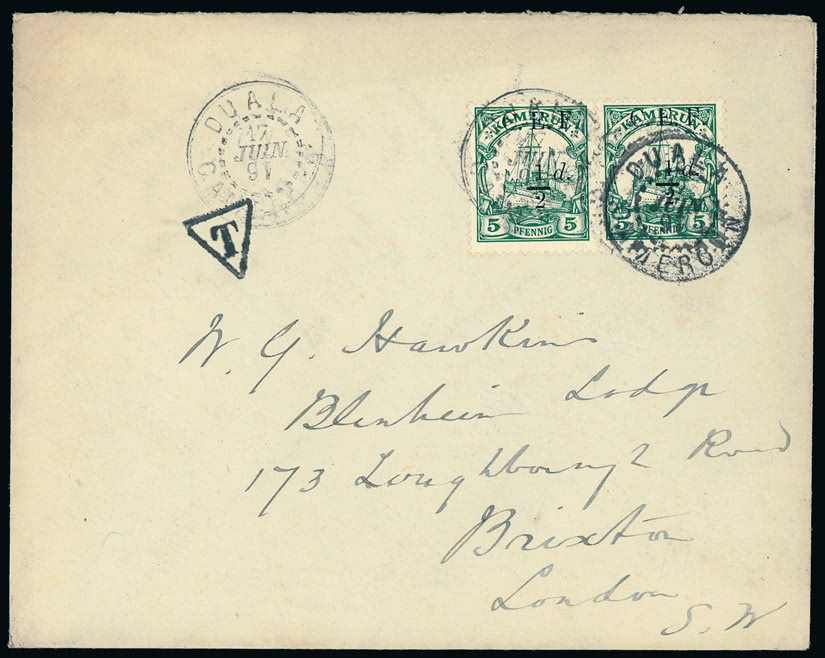 DUALA
17
JUIN.
91
T
KAMERUN
C. E. F.
1/2 d.
5 PFENNIG 5
KAMERUN
C. E. F.
1/2 d.
5 PFENNIG 5
DUALA
JUIN
CAMEROUN
W. G. Hawkins
Blenheim Lodge
173 Loughborough Road
Brixton
London
S. W